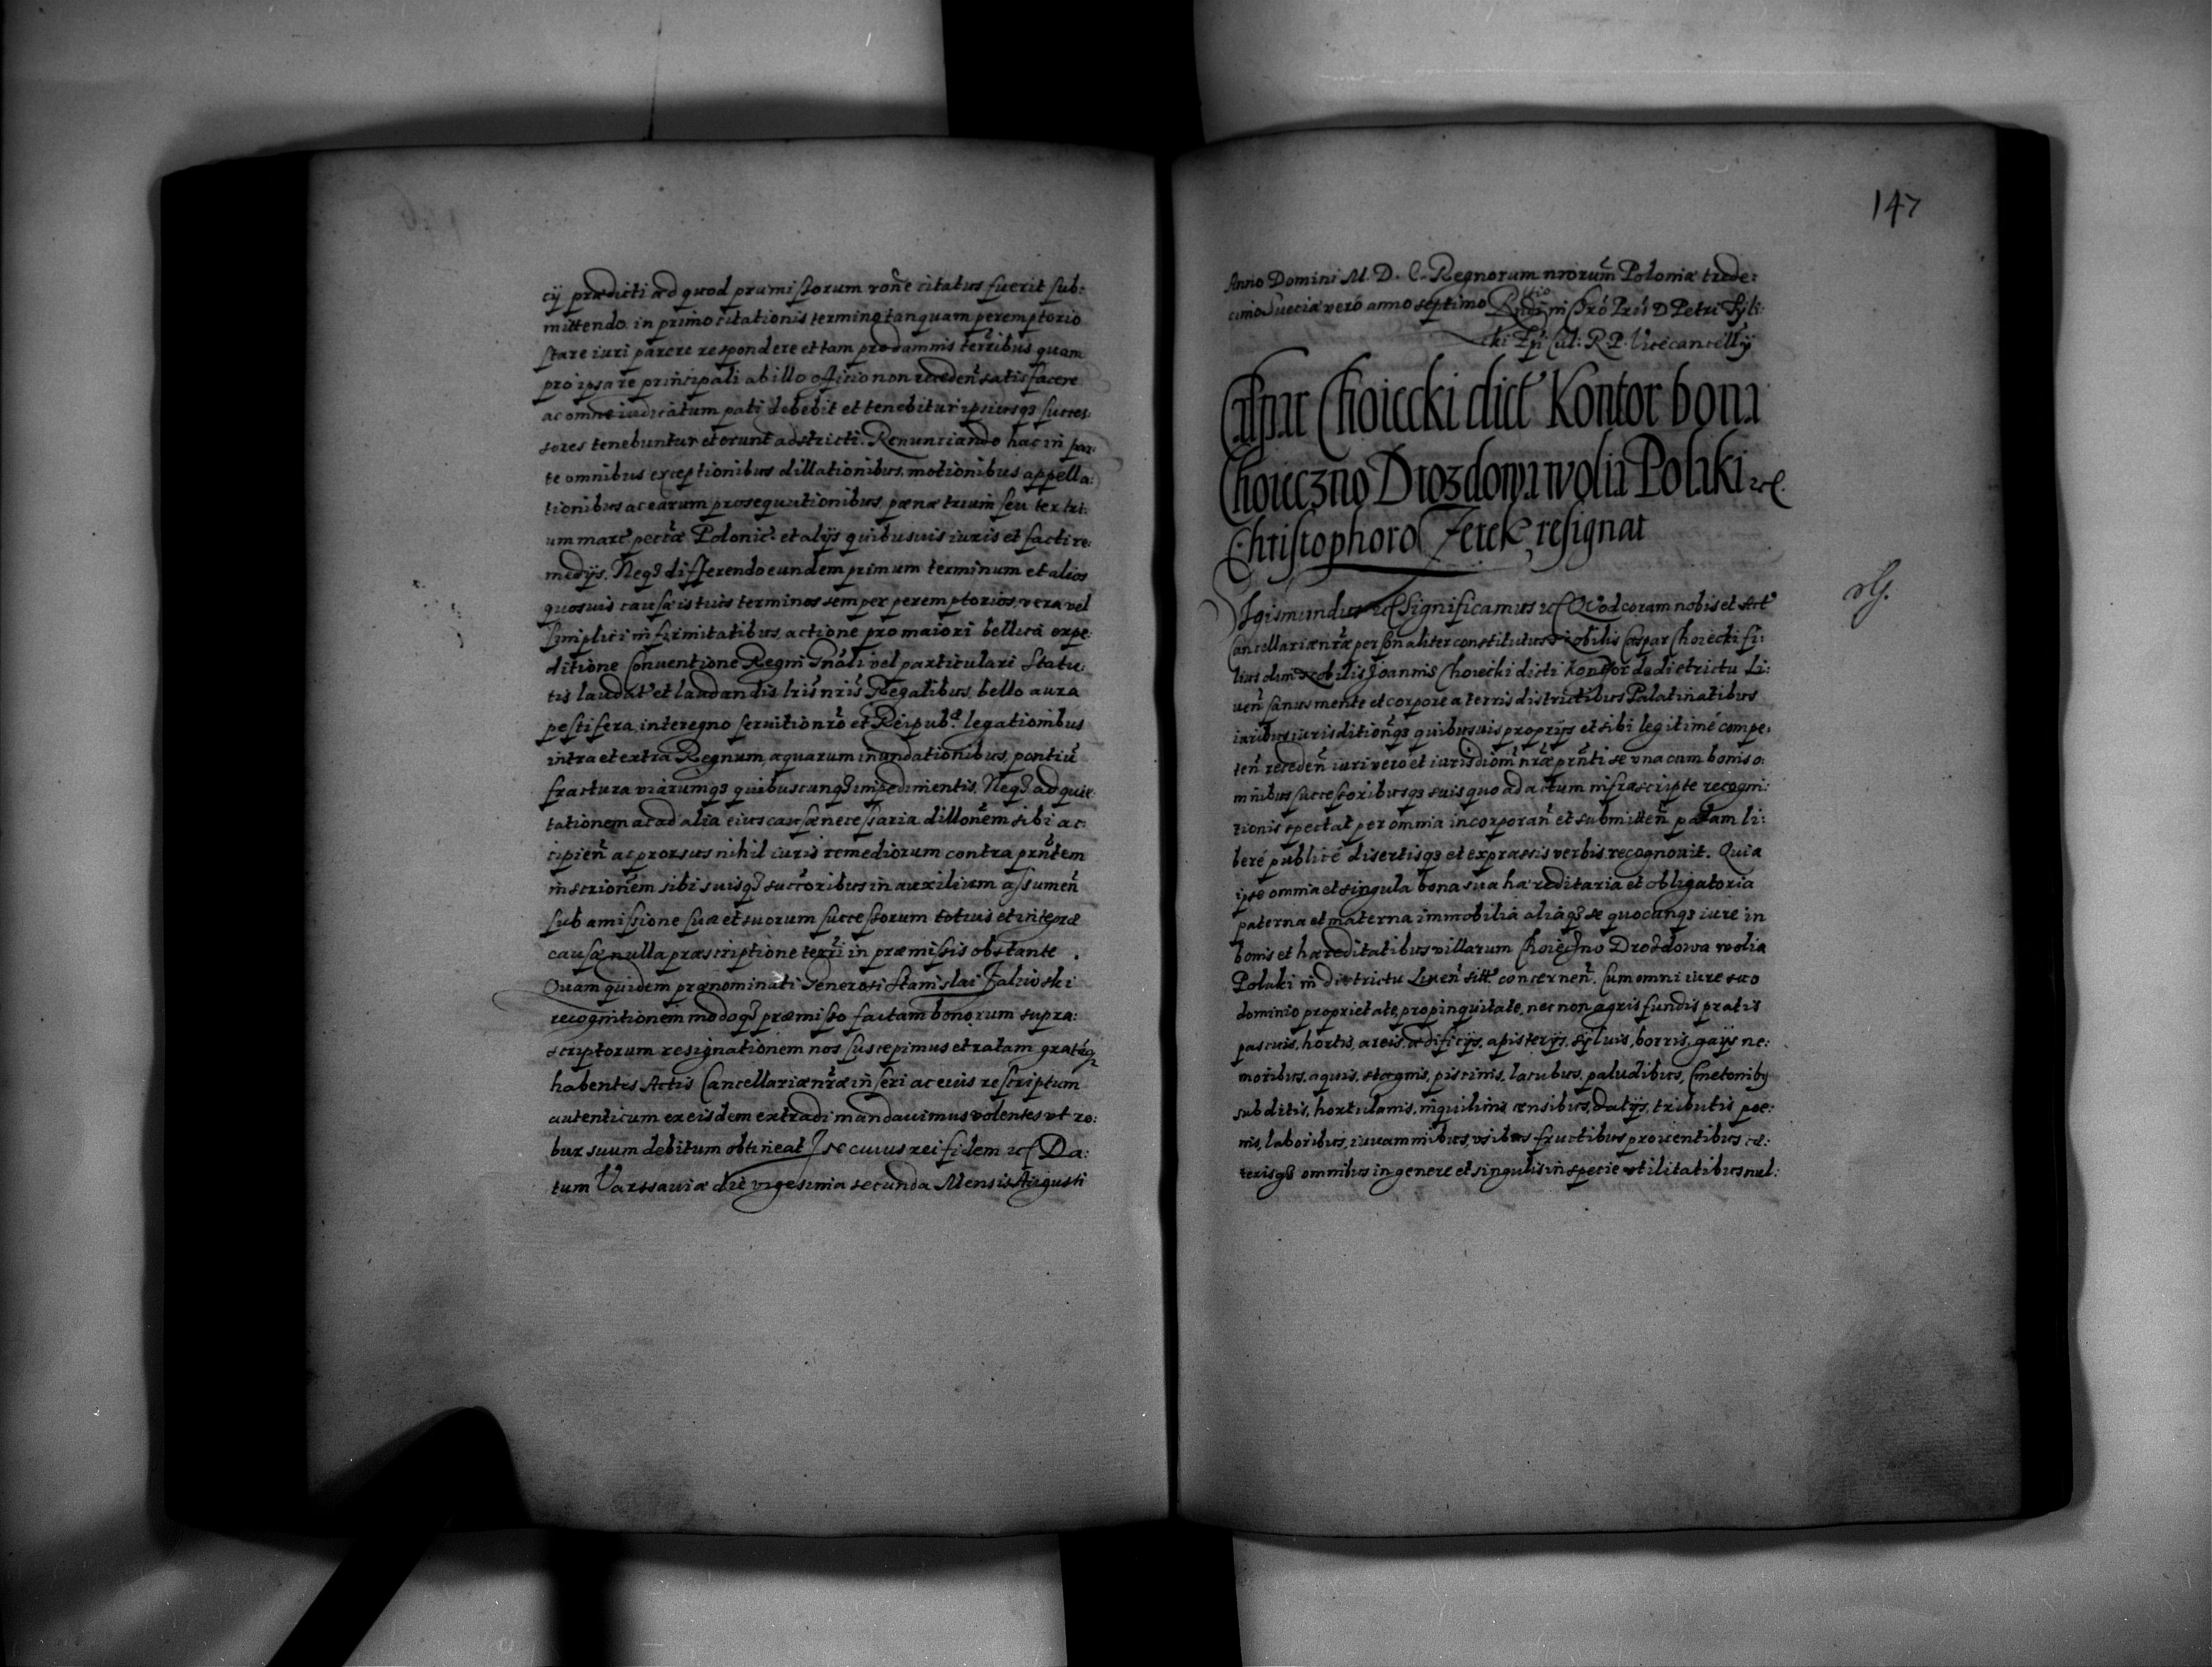 cÿ prædicti ad quod præmissorum rõne citatus fuerit sub:
mittendo in primo citationis termino tanquam peremptorio
stare iuri parere respondere et tam pro damnis terribus quam
pro ipsa re principali ab illo officio non receden̄ satisfacere
ac omne iudicatum pati debebit et tenebitur ipsiusq3 succes:
sores tenebuntur et erunt adstricti. Renunciando hac in par:
te omnibus exceptionibus dillationibus, motionibus appella:
tionibus ac earum prosequutionibus, pænæ trium seu
um marc̄ pecūæ Polonic̄ et alÿs quibusuis iuris et facti re:
medÿs. Neq3 differendo eundem primum terminum et alios
quosuis causæ istius terminos semper peremptorios, vera vel
simplici infirmitatibus, actione pro maiori bellica expe:
ditione Conuentione Regni gn̄ali vel particulari Statu:
tis laudat̄ et laudandis lr̄is nr̄is Regalibus, bello aura
pestifera, interegno seruitio nr̄o et Reipub: legationibus
intra et extra Regnum, aquarum inundationibus, pontiū
fractura viarumq3 quibuscunq3 impedimentis, Neq3 ad quie:
tationem ac ad alia eius causæ necessaria dillon̄em sibi ac:
cipien̄ ac prorsus nihil iuris remediorum contra prn̄tem
inscrion̄em sibi suisq3 succ̄oribus in auxilium assumen̄
sub amissione suæ et suorum successorum totius et integræ
causæ nulla præscriptione terr̄i in præmissis obstante .
Quam quidem prænominati Generosi Stanislai Zaliwski
recognitionem modoq3 præmisso factam bonorum supra:
scriptorum resignationem nos suscepimus et ratam gratāq3
habentes Actis Cancellariæ nr̄æ inseri ac eius rescriptum
autenticum ex eisdem extradi mandauimus volentes vt ro:
bur suum debitum obtineat In cuius rei fidem etc Da:
tum Varssauiæ die vigesima secunda Mensis Augusti
147
Anno Domini M. D. C. Regnorum nrorum̄ Poloniæ trede:
cimo Sueciæ vero anno septimo D Petri Tyli:
cki Epi Cul: R. P. Vicecancellÿ
Caspar Choiecki dict̄ Kontor bona
Choieczno Drozdowa wolia Polaki etc.
Christophoro Zerek resignat
Sigismundus etc Significamus etc Quod coram nobis et Act̄
Cancellariæ nr̄æ personaliter constitutus Nobilis Caspar Choiecki fi:
lius olim Nobilis Joannis Choiecki dicti Kontor de districtu Li:
uen̄ sanus mente et corpore a terris districtibus Palatinatibus
iuribus iurisdition̄q3 quibusuis proprÿs et sibi legitimé compe:
ten̄ receden̄ iuri vero et iurisdiom̄ nr̄æ prn̄ti se vna cum bonis o:
mnibus successoribusq3 suis quo ad actum infrascriptæ recogni:
tionis spectat per omnia incorporan̄ et submitten̄ palam li:
beré publicé disertisq3 et expressis verbis recognouit. Quia
ipse omnia et singula bona sua hæreditaria et obligatoria
paterna et materna immobilia aliaq3 se quocunq3 iure in
bonis et hæreditatibus villarum Choieczno Drozdowa wolia
Polaki in districtu Liuen̄ sitt̄ concernen̄. Cum omni iure suo
dominio proprietate, propinquitate, nec non agris fundis pratis
pascuis, hortis, areis, ædificÿs, apisterÿs, syluis, borris, gaÿs ne:
moribus, aquis, stagnis, piscinis, lacubus, paludibus, Cmetonib3
subditis, hortulanis, inquilinis censibus, datÿs, tributis poe:
nis, laboribus, iuuaminibus, vsibus fructibus prouentibus cæ:
terisq3 omnibus in genere et singulis in specie vtilitatibus nul: